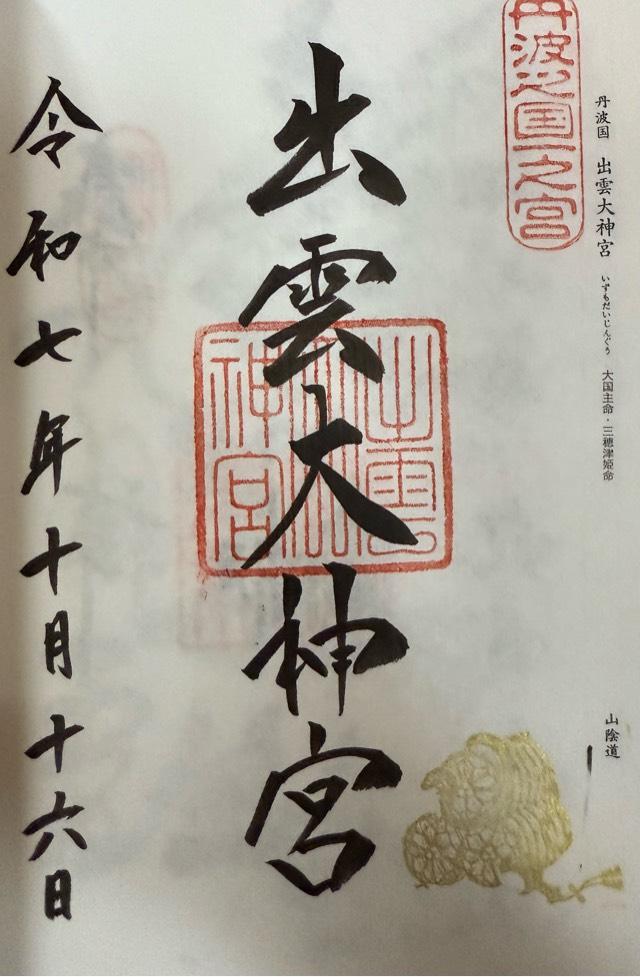 丹波国 出雲大神宮 いずもだいじんぐう 大国主命・三穂津姫命
山陰道
丹波之国一之宮
出雲大神宮
出雲大神宮
令和七年十月十六日